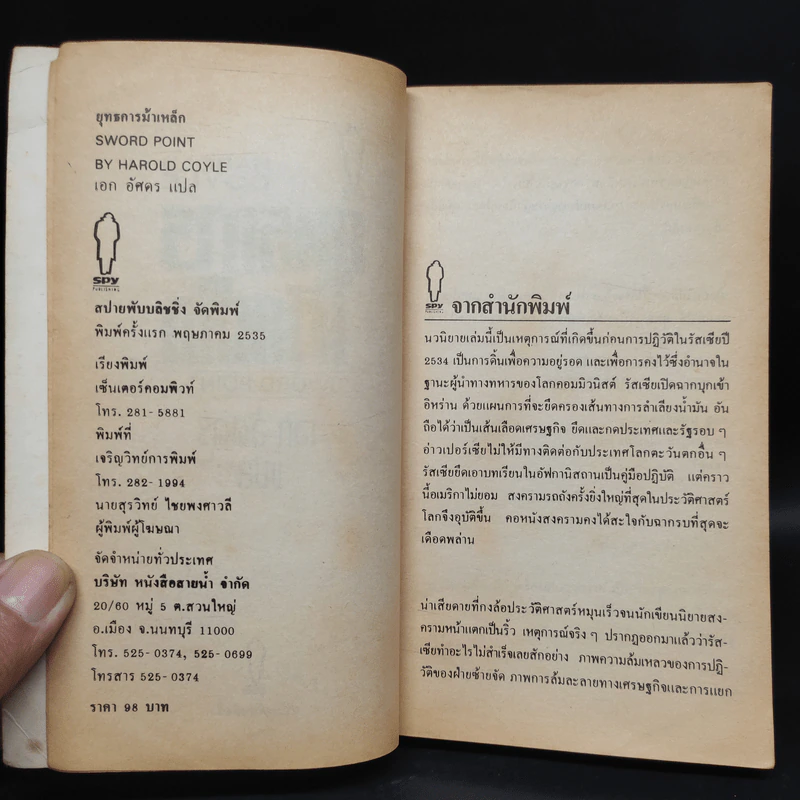 ยุทธการม้าเหล็ก
SWORD POINT
BY HAROLD COYLE
เอก อัศดร แปล
SPY
PUBLISHING
สปายพับบลิชชิ่ง จัดพิมพ์
พิมพ์ครั้งแรก พฤษภาคม 2535
เรียงพิมพ์
เซ็นเตอร์คอมพิวท์
โทร. 281-5881
พิมพ์ที่
เจริญวิทย์การพิมพ์
โทร. 282-1994
นายสุรวิทย์ ไชยพงศาวลี
ผู้พิมพ์ผู้โฆษณา
จัดจำหน่ายทั่วประเทศ
บริษัท หนังสือสายน้ำ จำกัด
20/60 หมู่ 5 ต.สวนใหญ่
อ.เมือง จ.นนทบุรี 11000
โทร. 525-0374, 525-0699
โทรสาร 525-0374
ราคา 98 บาท
SPY
PUBLISHING
จากสำนักพิมพ์
นวนิยายเล่มนี้เป็นเหตุการณ์ที่เกิดขึ้นก่อนการปฏิวัติในรัสเซียปี
2534 เป็นการดิ้นเพื่อความอยู่รอด และเพื่อการคงไว้ซึ่งอำนาจใน
ฐานะผู้นำทางทหารของโลกคอมมิวนิสต์ รัสเซียเปิดฉากบุกเข้า
อิหร่าน ด้วยแผนการที่จะยึดครองเส้นทางการลำเลียงน้ำมัน อัน
ถือได้ว่าเป็นเส้นเลือดเศรษฐกิจ ยึดและกดประเทศและรัฐรอบ ๆ
อ่าวเปอร์เซียไม่ให้มีทางติดต่อกับประเทศโลกตะวันตกอื่น ๆ
รัสเซียยึดเอาบทเรียนในอัฟกานิสถานเป็นคู่มือปฏิบัติ แต่คราว
นี้อเมริกาไม่ยอม สงครามรถถังครั้งยิ่งใหญ่ที่สุดในประวัติศาสตร์
โลกจึงอุบัติขึ้น คอหนังสงครามคงได้สะใจกับฉากรบที่สุดจะ
เดือดพล่าน
น่าเสียดายที่กงล้อประวัติศาสตร์หมุนเร็วจนนักเขียนนิยายสง-
ครามหน้าแตกเป็นริ้ว เหตุการณ์จริง ๆ ปรากฏออกมาแล้วว่ารัส-
เซียทำอะไรไม่สำเร็จเลยสักอย่าง ภาพความล้มเหลวของการปฏิ-
วัติของฝ่ายซ้ายจัด ภาพการล้มละลายทางเศรษฐกิจและการแยก